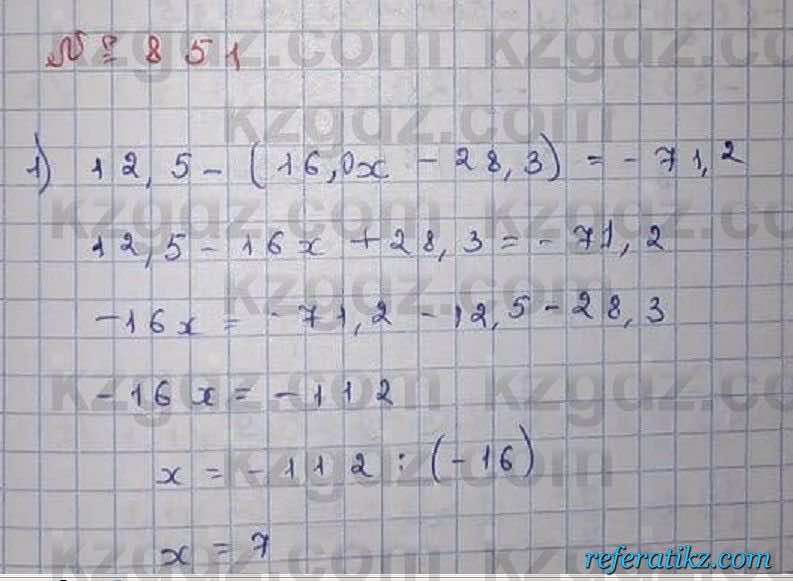 № 851
1) 12,5 - (16,0x - 28,3) = - 71,2
12,5 - 16x + 28,3 = - 71,2
-16x = - 71,2 - 12,5 - 28,3
-16x = - 112
x = - 112 : (-16)
x = 7
kzgdz.com
referatikz.com